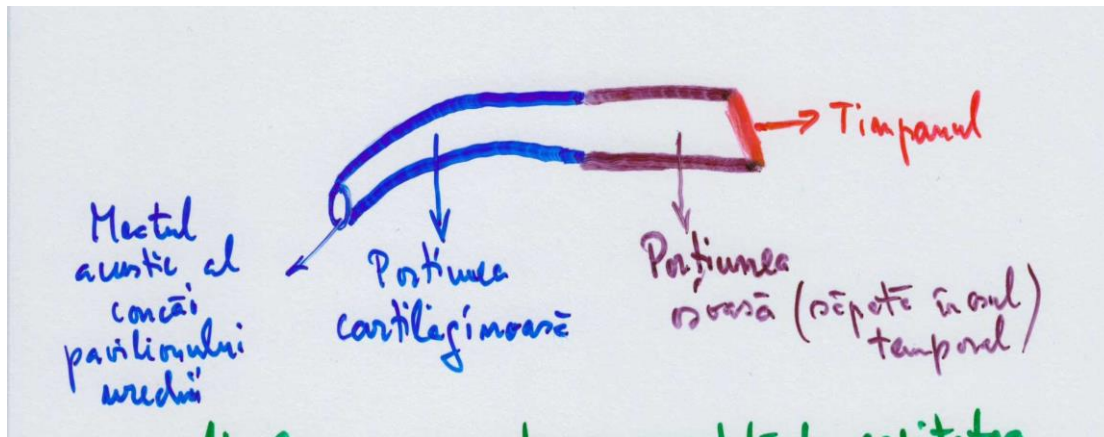 Timpanul
Meatul
acustic al
concăi
pavilionului
urechii
Porțiunea
cartilaginoasă
Porțiunea
osoasă (săpată în osul
temporal)